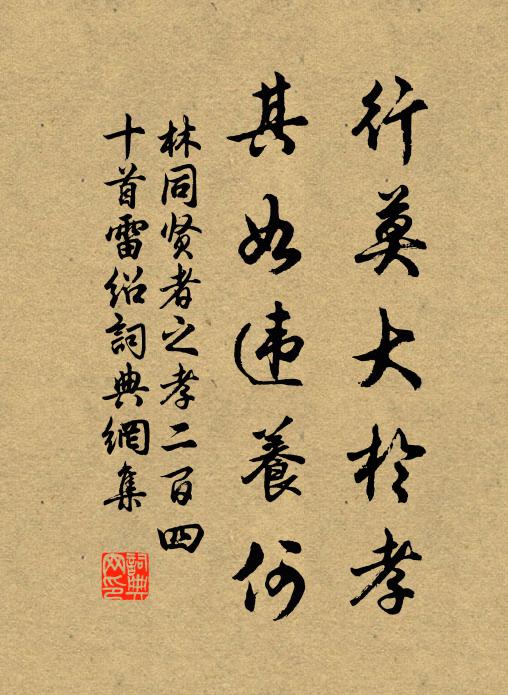 行莫大於孝
其如违養何
林同贤者之孝二百四
十首雷绍詞典網集
詞典网印